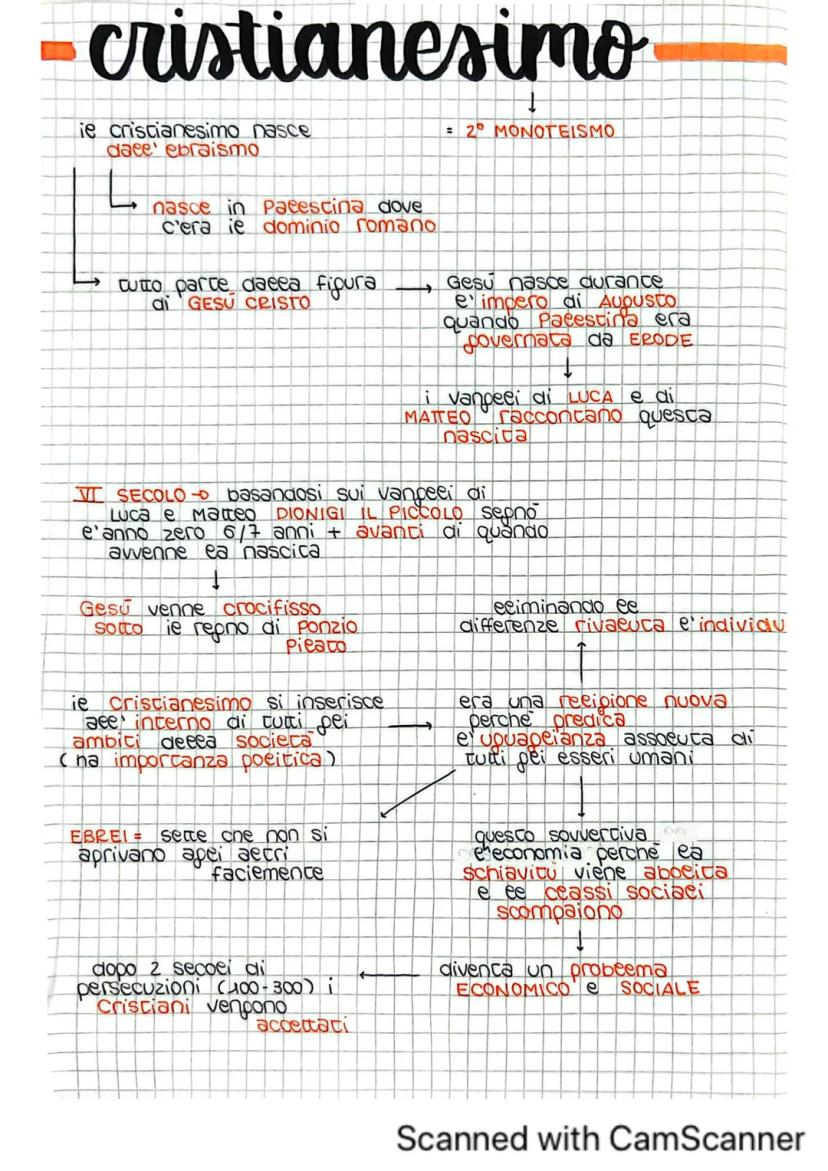 cristianesimo
il cristianesimo nasce
dall'ebraismo
= 2° MONOTEISMO
nasce in Palestina dove
c'era il dominio romano
tutto parte dalla figura
di GESÙ CRISTO
Gesù nasce durante
l'impero di Augusto
quando Palestina era
governata da ERODE
i vangeli di LUCA e di
MATTEO raccontano questa
nascita
VI SECOLO → basandosi sui vangeli di
Luca e Matteo DIONIGI IL PICCOLO segnò
l'anno zero 6/7 anni + avanti di quando
avvenne la nascita
Gesù venne crocifisso
sotto il regno di Ponzio
Pilato
eliminando le
differenze rivaluta l'individu
il Cristianesimo si inserisce
all'interno di tutti gli
ambiti della società
(ha importanza politica)
era una religione nuova
perché predica
l'uguaglianza assoluta di
tutti gli esseri umani
EBREI = sette che non si
aprivano agli altri
facilmente
questo sovvertiva
l'economia perché la
schiavitù viene abolita
e le classi sociali
scompaiono
diventa un problema
ECONOMICO e SOCIALE
dopo 2 secoli di
persecuzioni (100-300) i
Cristiani vengono
accettati
Scanned with CamScanner